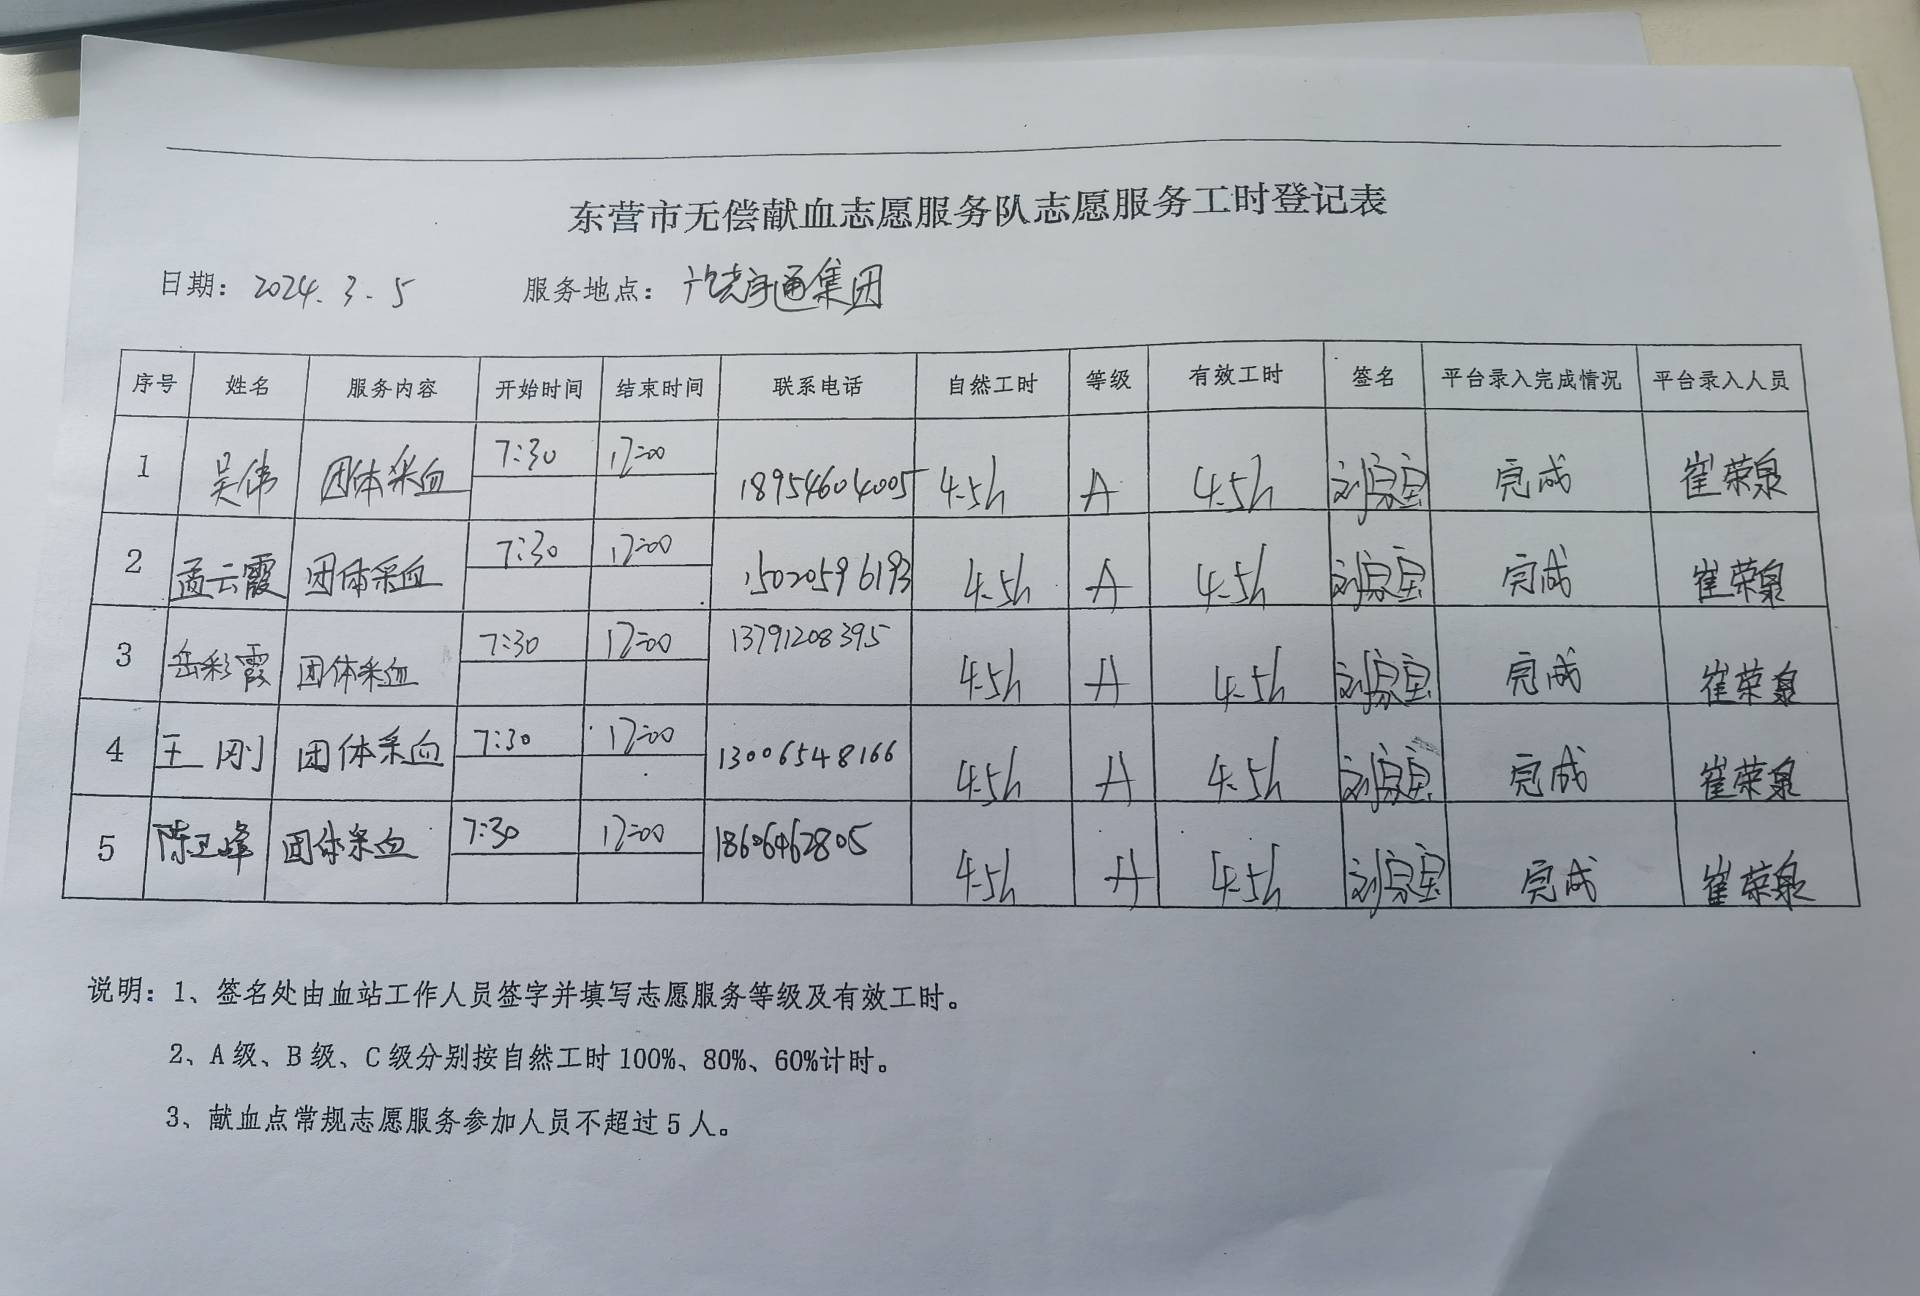 东营市无偿献血志愿服务队志愿服务工时登记表
日期: 2024.3.5 服务地点: 广饶宇通集团
序号 姓名 服务内容 开始时间 结束时间 联系电话 自然工时 等级 有效工时 签名 平台录入完成情况 平台录入人员
1 吴伟 团体采血 7:30 12:00 18954604005 4.5h A 4.5h 刘宗宝 完成 崔荣泉
2 孟云霞 团体采血 7:30 12:00 15020596193 4.5h A 4.5h 刘宗宝 完成 崔荣泉
3 岳彩霞 团体采血 7:30 12:00 13791208395 4.5h A 4.5h 刘宗宝 完成 崔荣泉
4 王刚 团体采血 7:30 12:00 13006548166 4.5h A 4.5h 刘宗宝 完成 崔荣泉
5 陈卫峰 团体采血 7:30 12:00 18606462805 4.5h A 4.5h 刘宗宝 完成 崔荣泉
说明: 1、签名处由血站工作人员签字并填写志愿服务等级及有效工时。
2、A级、B级、C级分别按自然工时100%、80%、60%计时。
3、献血点常规志愿服务参加人员不超过5人。